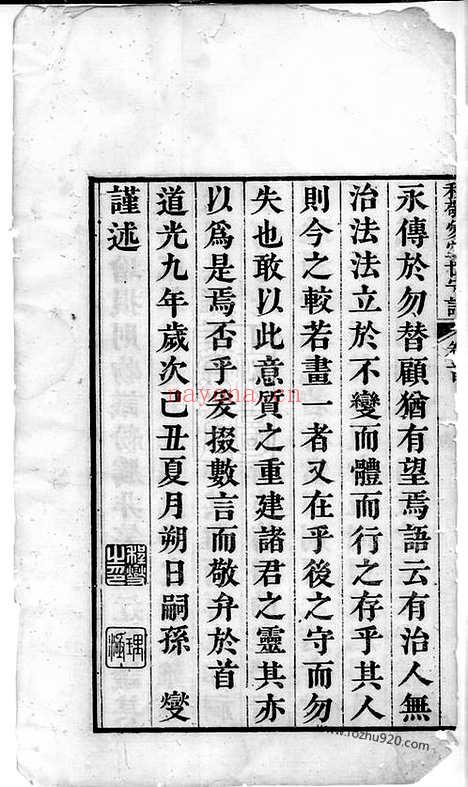 永傳於勿替顧猶有望焉語云有治人無
治法法立於不變而體而行之存乎其人
則今之較若畫一者又在乎後之守而勿
失也敢以此意質之重建諸君之靈其亦
以爲是焉否乎爰掇數言而敬弁於首
道光九年歲次己丑夏月朔日嗣孫 燮
謹述
nayona.cn
www.rozhu920.com